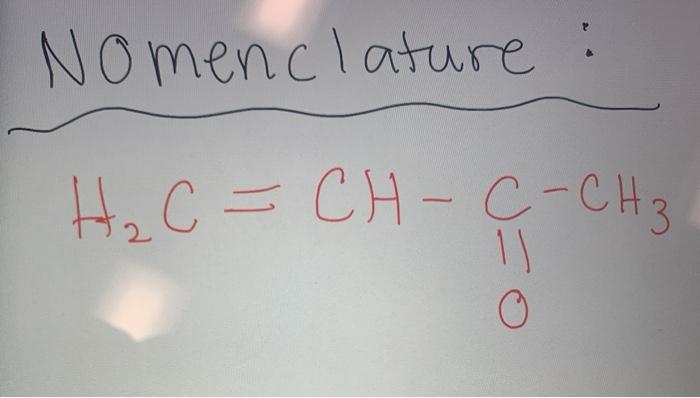 Nomenclature :
H₂C = CH - C - CH₃
||
O